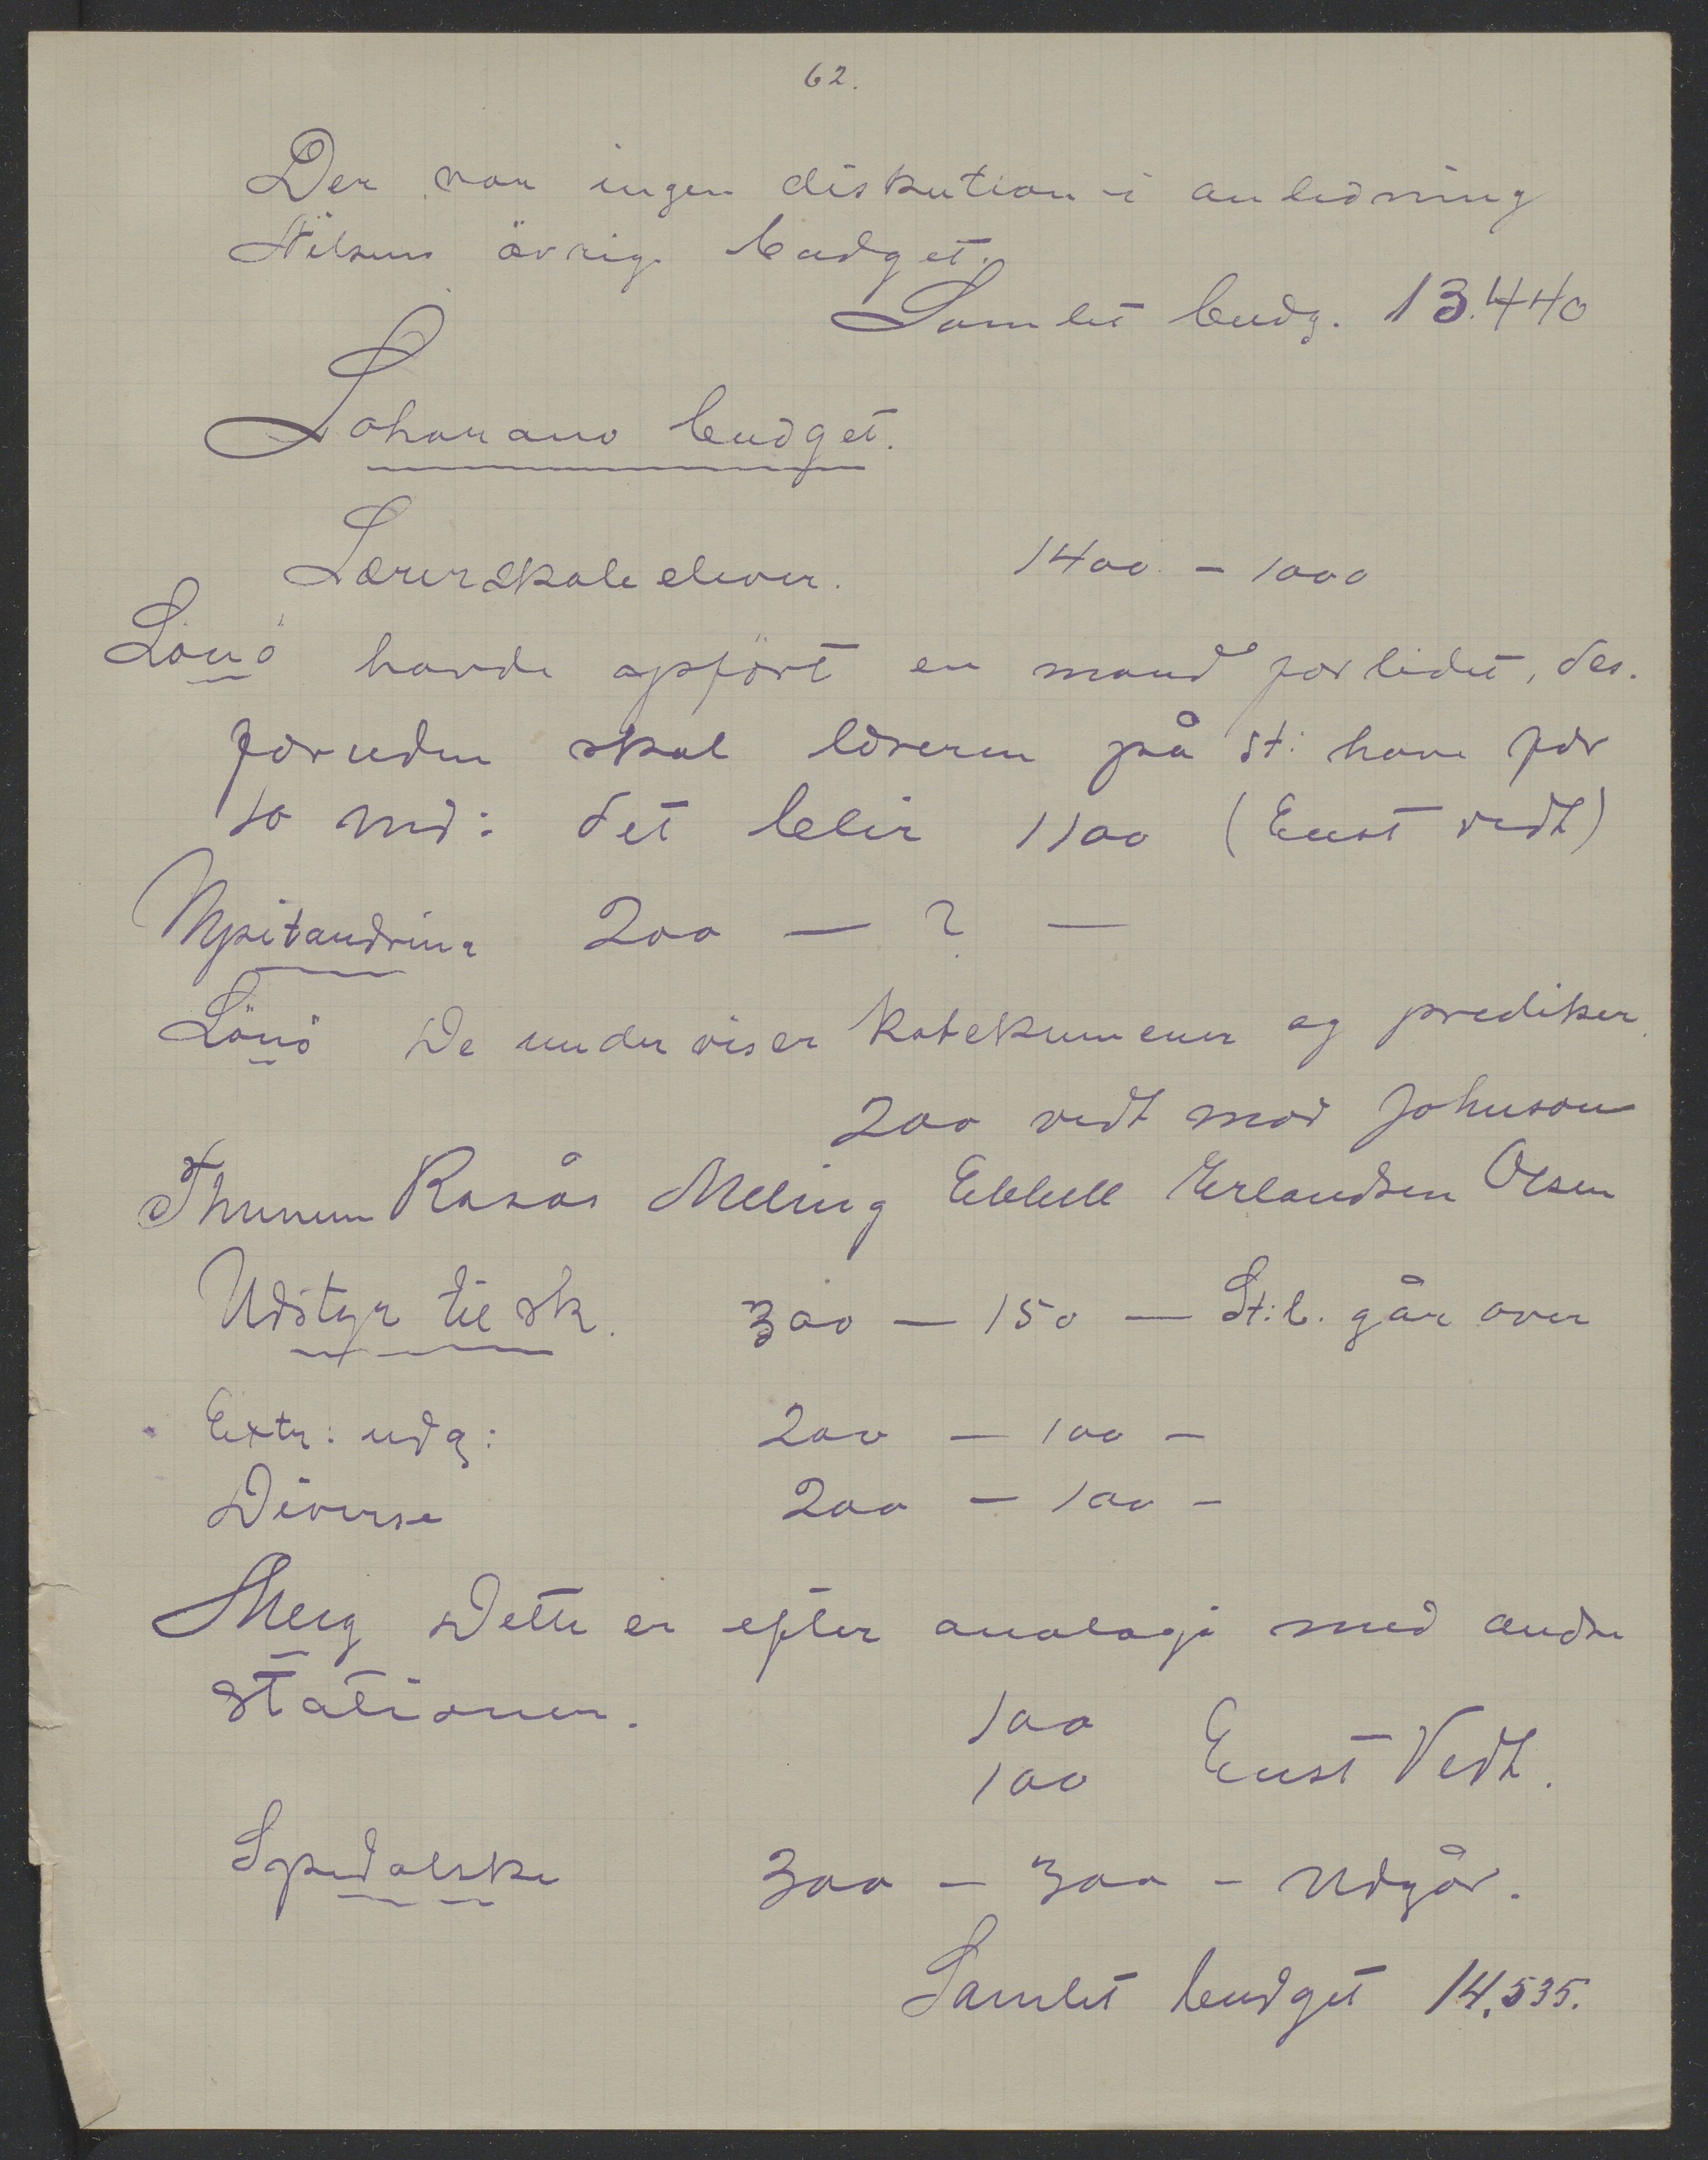 62.
Der var ingen diskution i anledning
Nilsens övrige budget.
Samlet budg. 13.440
Loharano budget.
Lærerskole elever. 1400 - 1000
Lönö havde opfört en mand for lidet, des.
foruden skal læreren på st: have for
10 md: det bliir 1100 (Enst vedt)
Mpitandrina 200 — ? —
Lönö De underviser katekumener og prediker.
200 vedt mod Johnson
Thunem Rasås Meling Ebbell Erlandsen Olsen
Udstyr til sk. 300 — 150 — St:b. går over
Extr: udg: 200 — 100 -
Diverse 200 — 100 -
Meig Dette er efter analogi med andre
stationer.
100
100 Enst Vedt.
Spedalske 300 - 300 - Udgår.
Samlet budget 14.535.